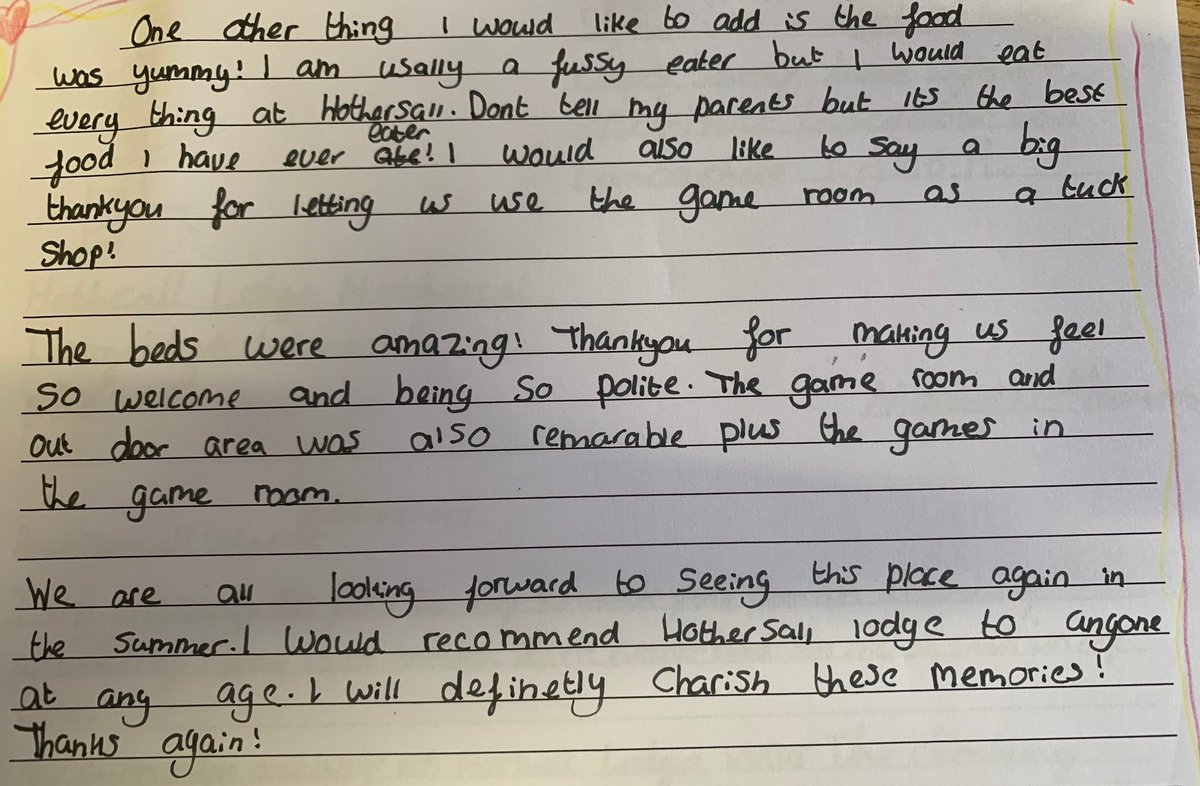 One other thing I would like to add is the food
was yummy! I am usally a fussy eater but I would eat
every thing at Hothersall. Dont tell my parents but its the best
food I have ever ate! eater I would also like to say a big
thankyou for letting us use the game room as a tuck
Shop!
The beds were amazing! Thankyou for making us feel
so welcome and being so polite. The game room and
out door area was also remarable plus the games in
the game room.
We are all looking forward to seeing this place again in
the summer. I would recommend Hothersall lodge to anyone
at any age. I will definetly charish these memories!
Thanks again!